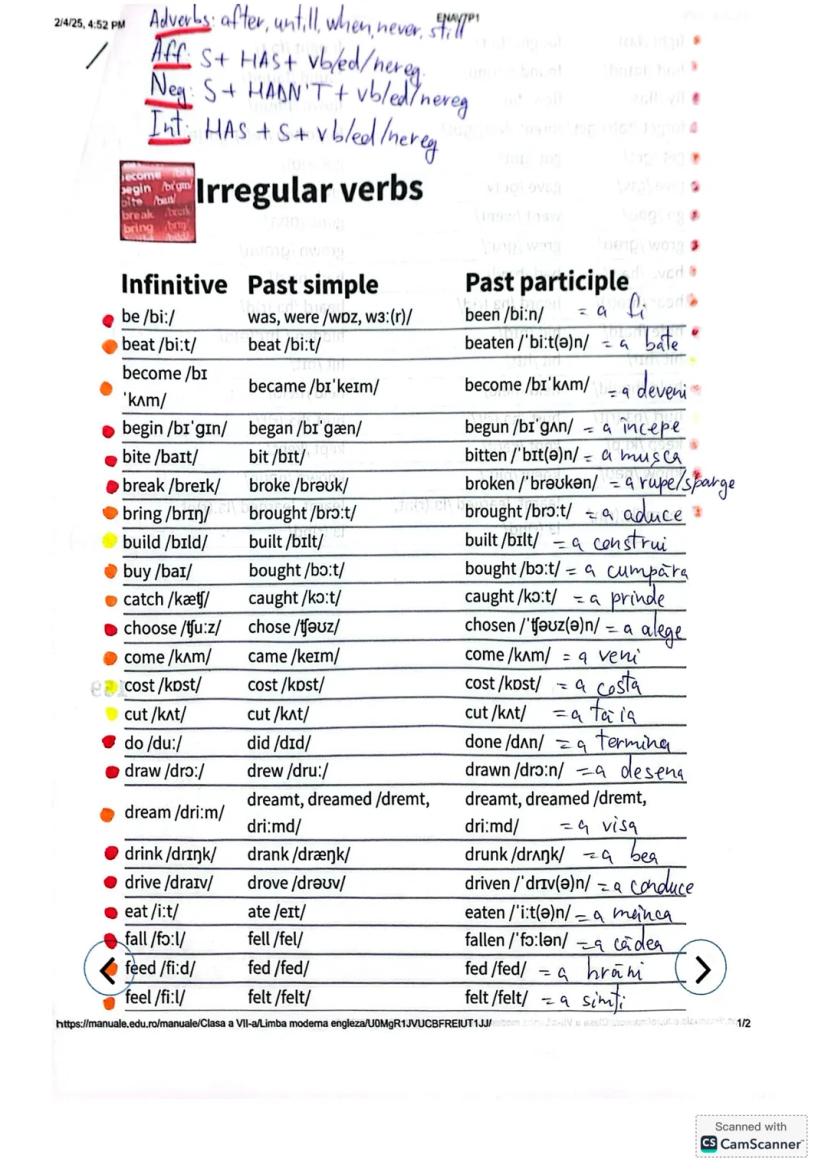 2/4/25, 4:52 PM ENAV7P1
Adverbs: after, untill, when, never, still
Aff: S+ HAS+ vb/ed/nereg.
Neg: S+ HADN'T + vb/ed/nereg
Int: HAS + S+ vb/ed/nereg
Irregular verbs
Infinitive Past simple Past participle
be /biː/ was, were /wɒz, wɜː(r)/ been /biːn/ = a fi
beat /biːt/ beat /biːt/ beaten /ˈbiːt(ə)n/ = a bate
become /bɪˈkʌm/ became /bɪˈkeɪm/ become /bɪˈkʌm/ = a deveni
begin /bɪˈɡɪn/ began /bɪˈɡæn/ begun /bɪˈɡʌn/ = a începe
bite /baɪt/ bit /bɪt/ bitten /ˈbɪt(ə)n/ = a mușca
break /breɪk/ broke /brəʊk/ broken /ˈbrəʊkən/ = a rupe/sparge
bring /brɪŋ/ brought /brɔːt/ brought /brɔːt/ = a aduce
build /bɪld/ built /bɪlt/ built /bɪlt/ = a construi
buy /baɪ/ bought /bɔːt/ bought /bɔːt/ = a cumpăra
catch /kætʃ/ caught /kɔːt/ caught /kɔːt/ = a prinde
choose /tʃuːz/ chose /tʃəʊz/ chosen /ˈtʃəʊz(ə)n/ = a alege
come /kʌm/ came /keɪm/ come /kʌm/ = a veni
cost /kɒst/ cost /kɒst/ cost /kɒst/ = a costa
cut /kʌt/ cut /kʌt/ cut /kʌt/ = a tăia
do /duː/ did /dɪd/ done /dʌn/ = a termina
draw /drɔː/ drew /druː/ drawn /drɔːn/ = a desena
dream /driːm/ dreamt, dreamed /dremt, driːmd/ dreamt, dreamed /dremt, driːmd/ = a visa
drink /drɪŋk/ drank /dræŋk/ drunk /drʌŋk/ = a bea
drive /draɪv/ drove /drəʊv/ driven /ˈdrɪv(ə)n/ = a conduce
eat /iːt/ ate /eɪt/ eaten /ˈiːt(ə)n/ = a meinca
fall /fɔːl/ fell /fel/ fallen /ˈfɔːlən/ = a cădea
feed /fiːd/ fed /fed/ fed /fed/ = a hrăni
feel /fiːl/ felt /felt/ felt /felt/ = a simți
https://manuale.edu.ro/manuale/Clasa a VII-a/Limba moderna engleza/U0MgR1JVUCBFREIUT1JJ/ 1/2
Scanned with
CS CamScanner